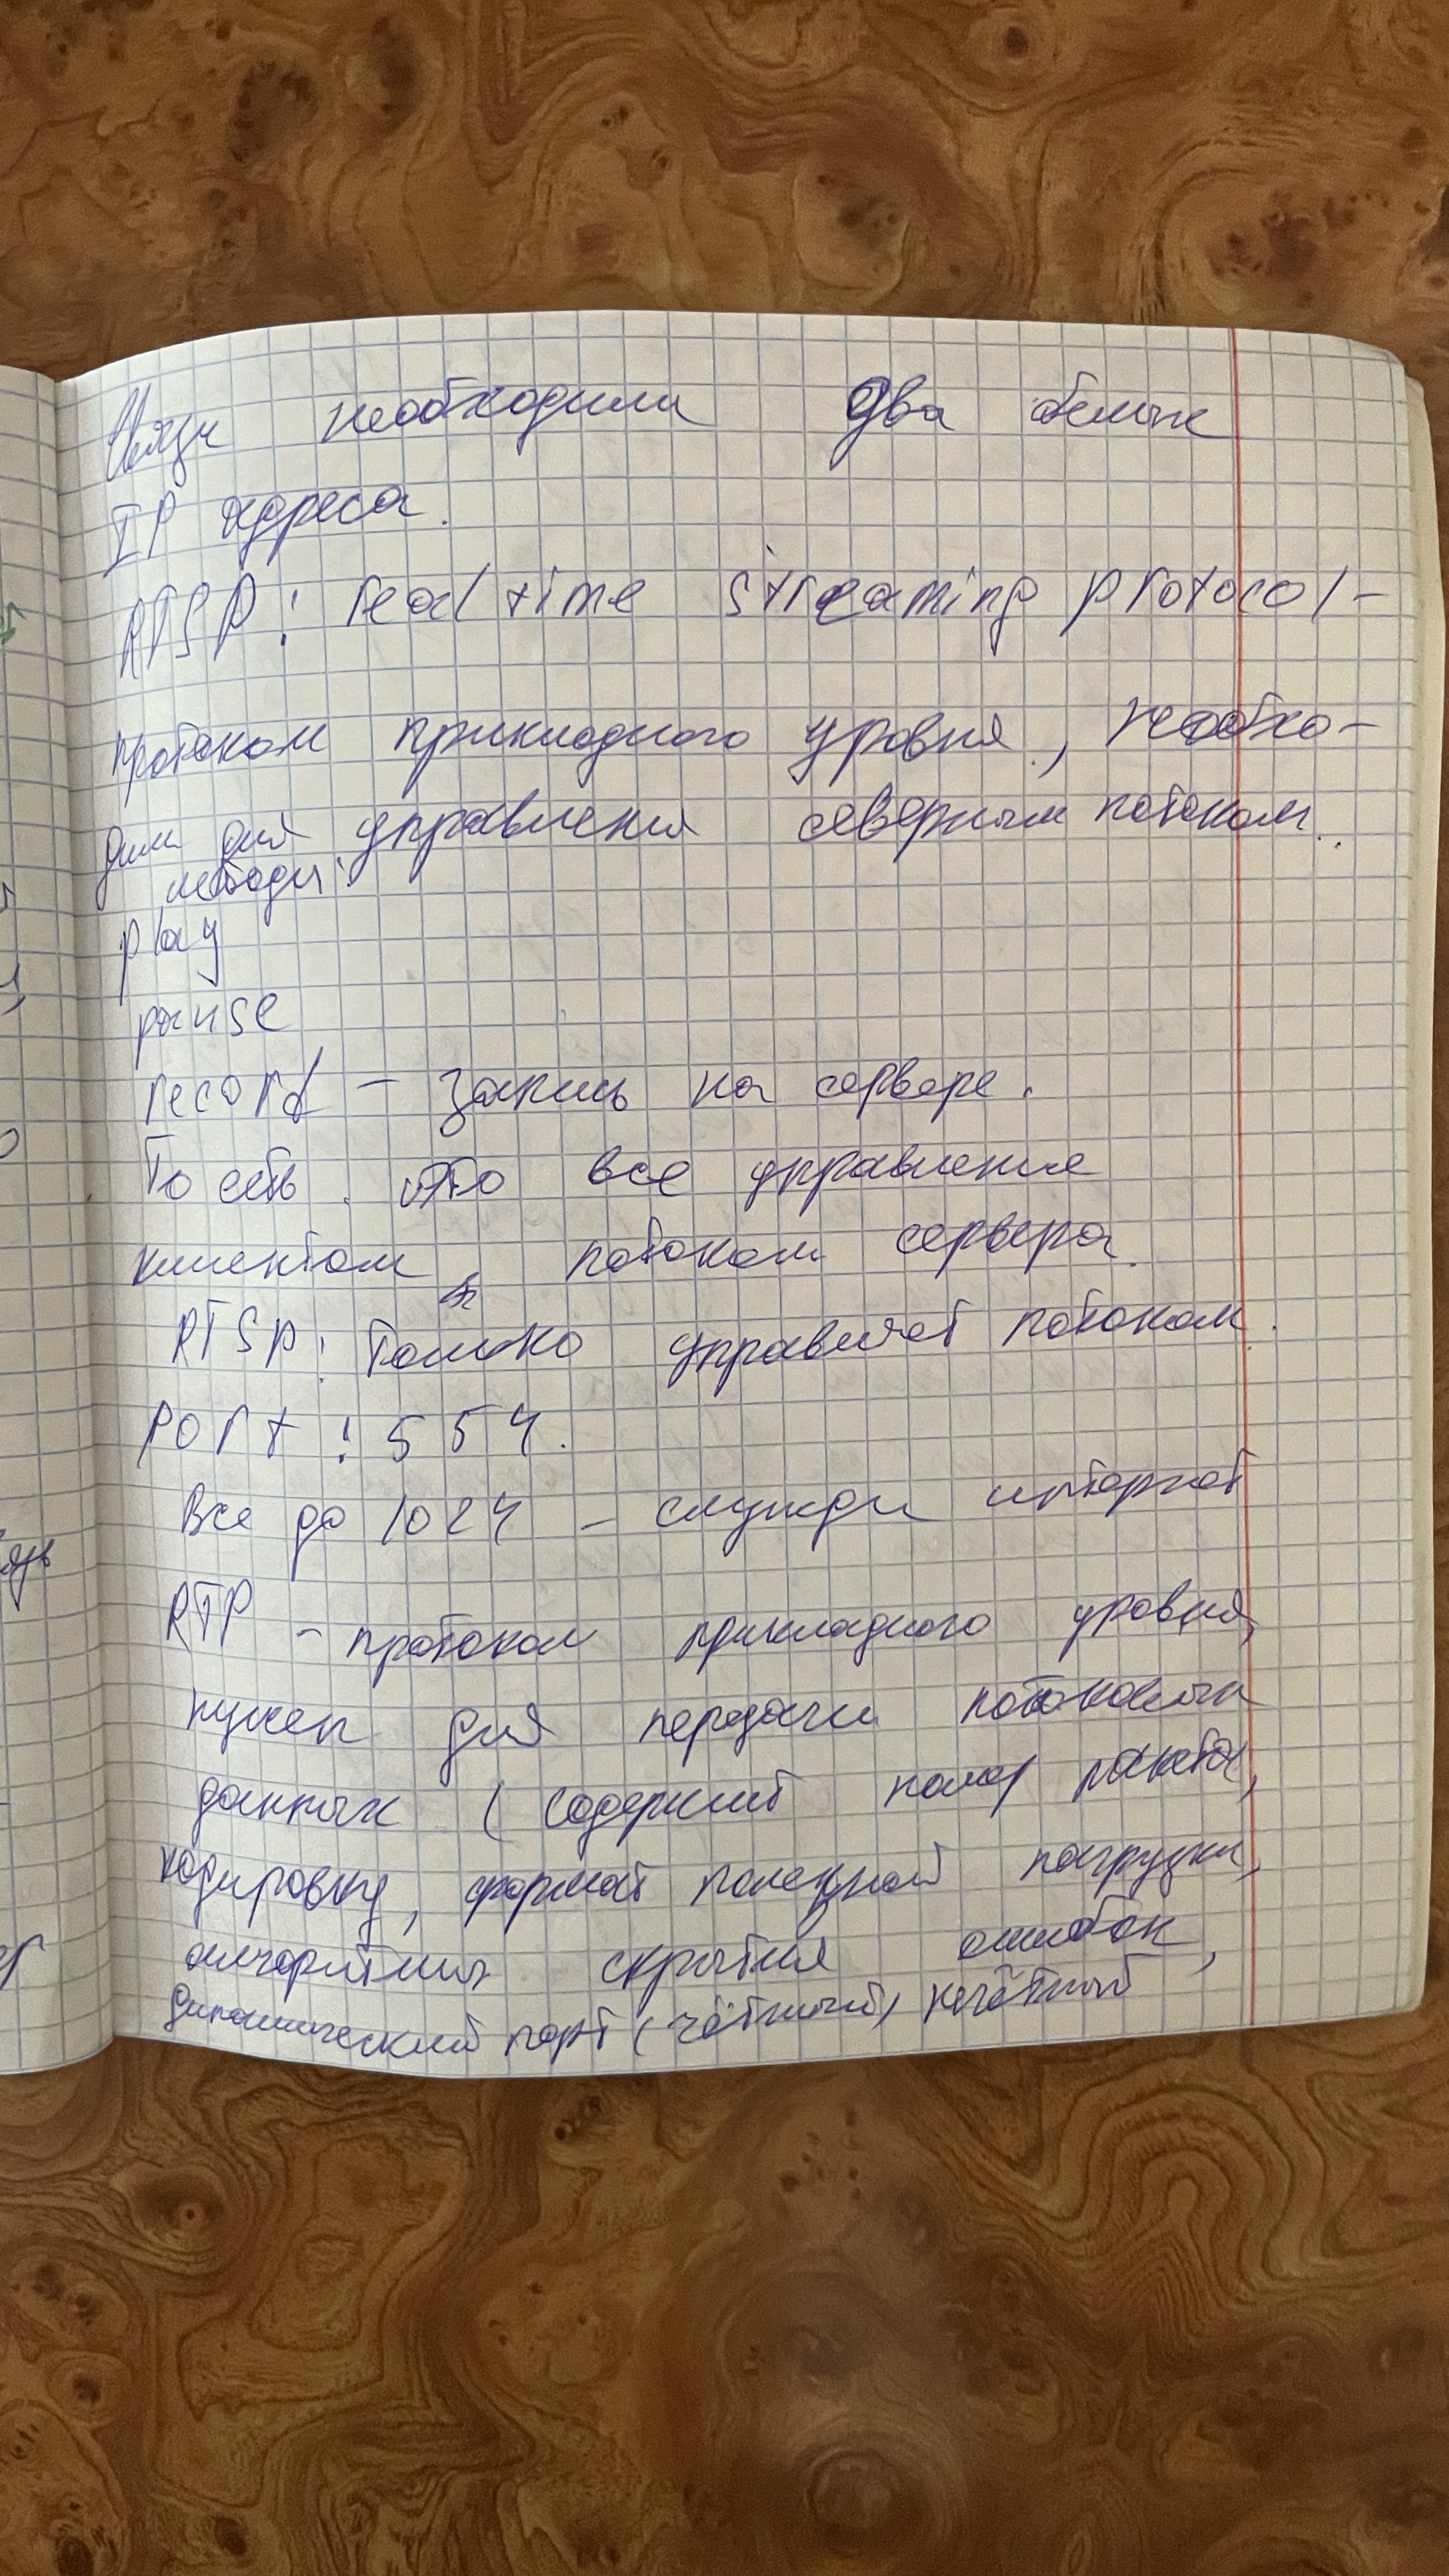 необходимы два белых
IP адреса.
RTSP: real time streaming protocol -
протокол прикладного уровня, необхо-
дим для управления северным потоком.
методы:
play
pause
record - запись на сервере.
То есть. это все управление
клиентом потоком сервера.
RTSP: только управляет потоком.
port: 554.
Все до 1024 - службы интернет
RTP - протокол прикладного уровня,
нужен для передачи потоковых
данных (содержит номер пакета,
кодировку, формат полезной нагрузки,
алгоритмы скрытия ошибок,
динамический порт (чётный) нечётный